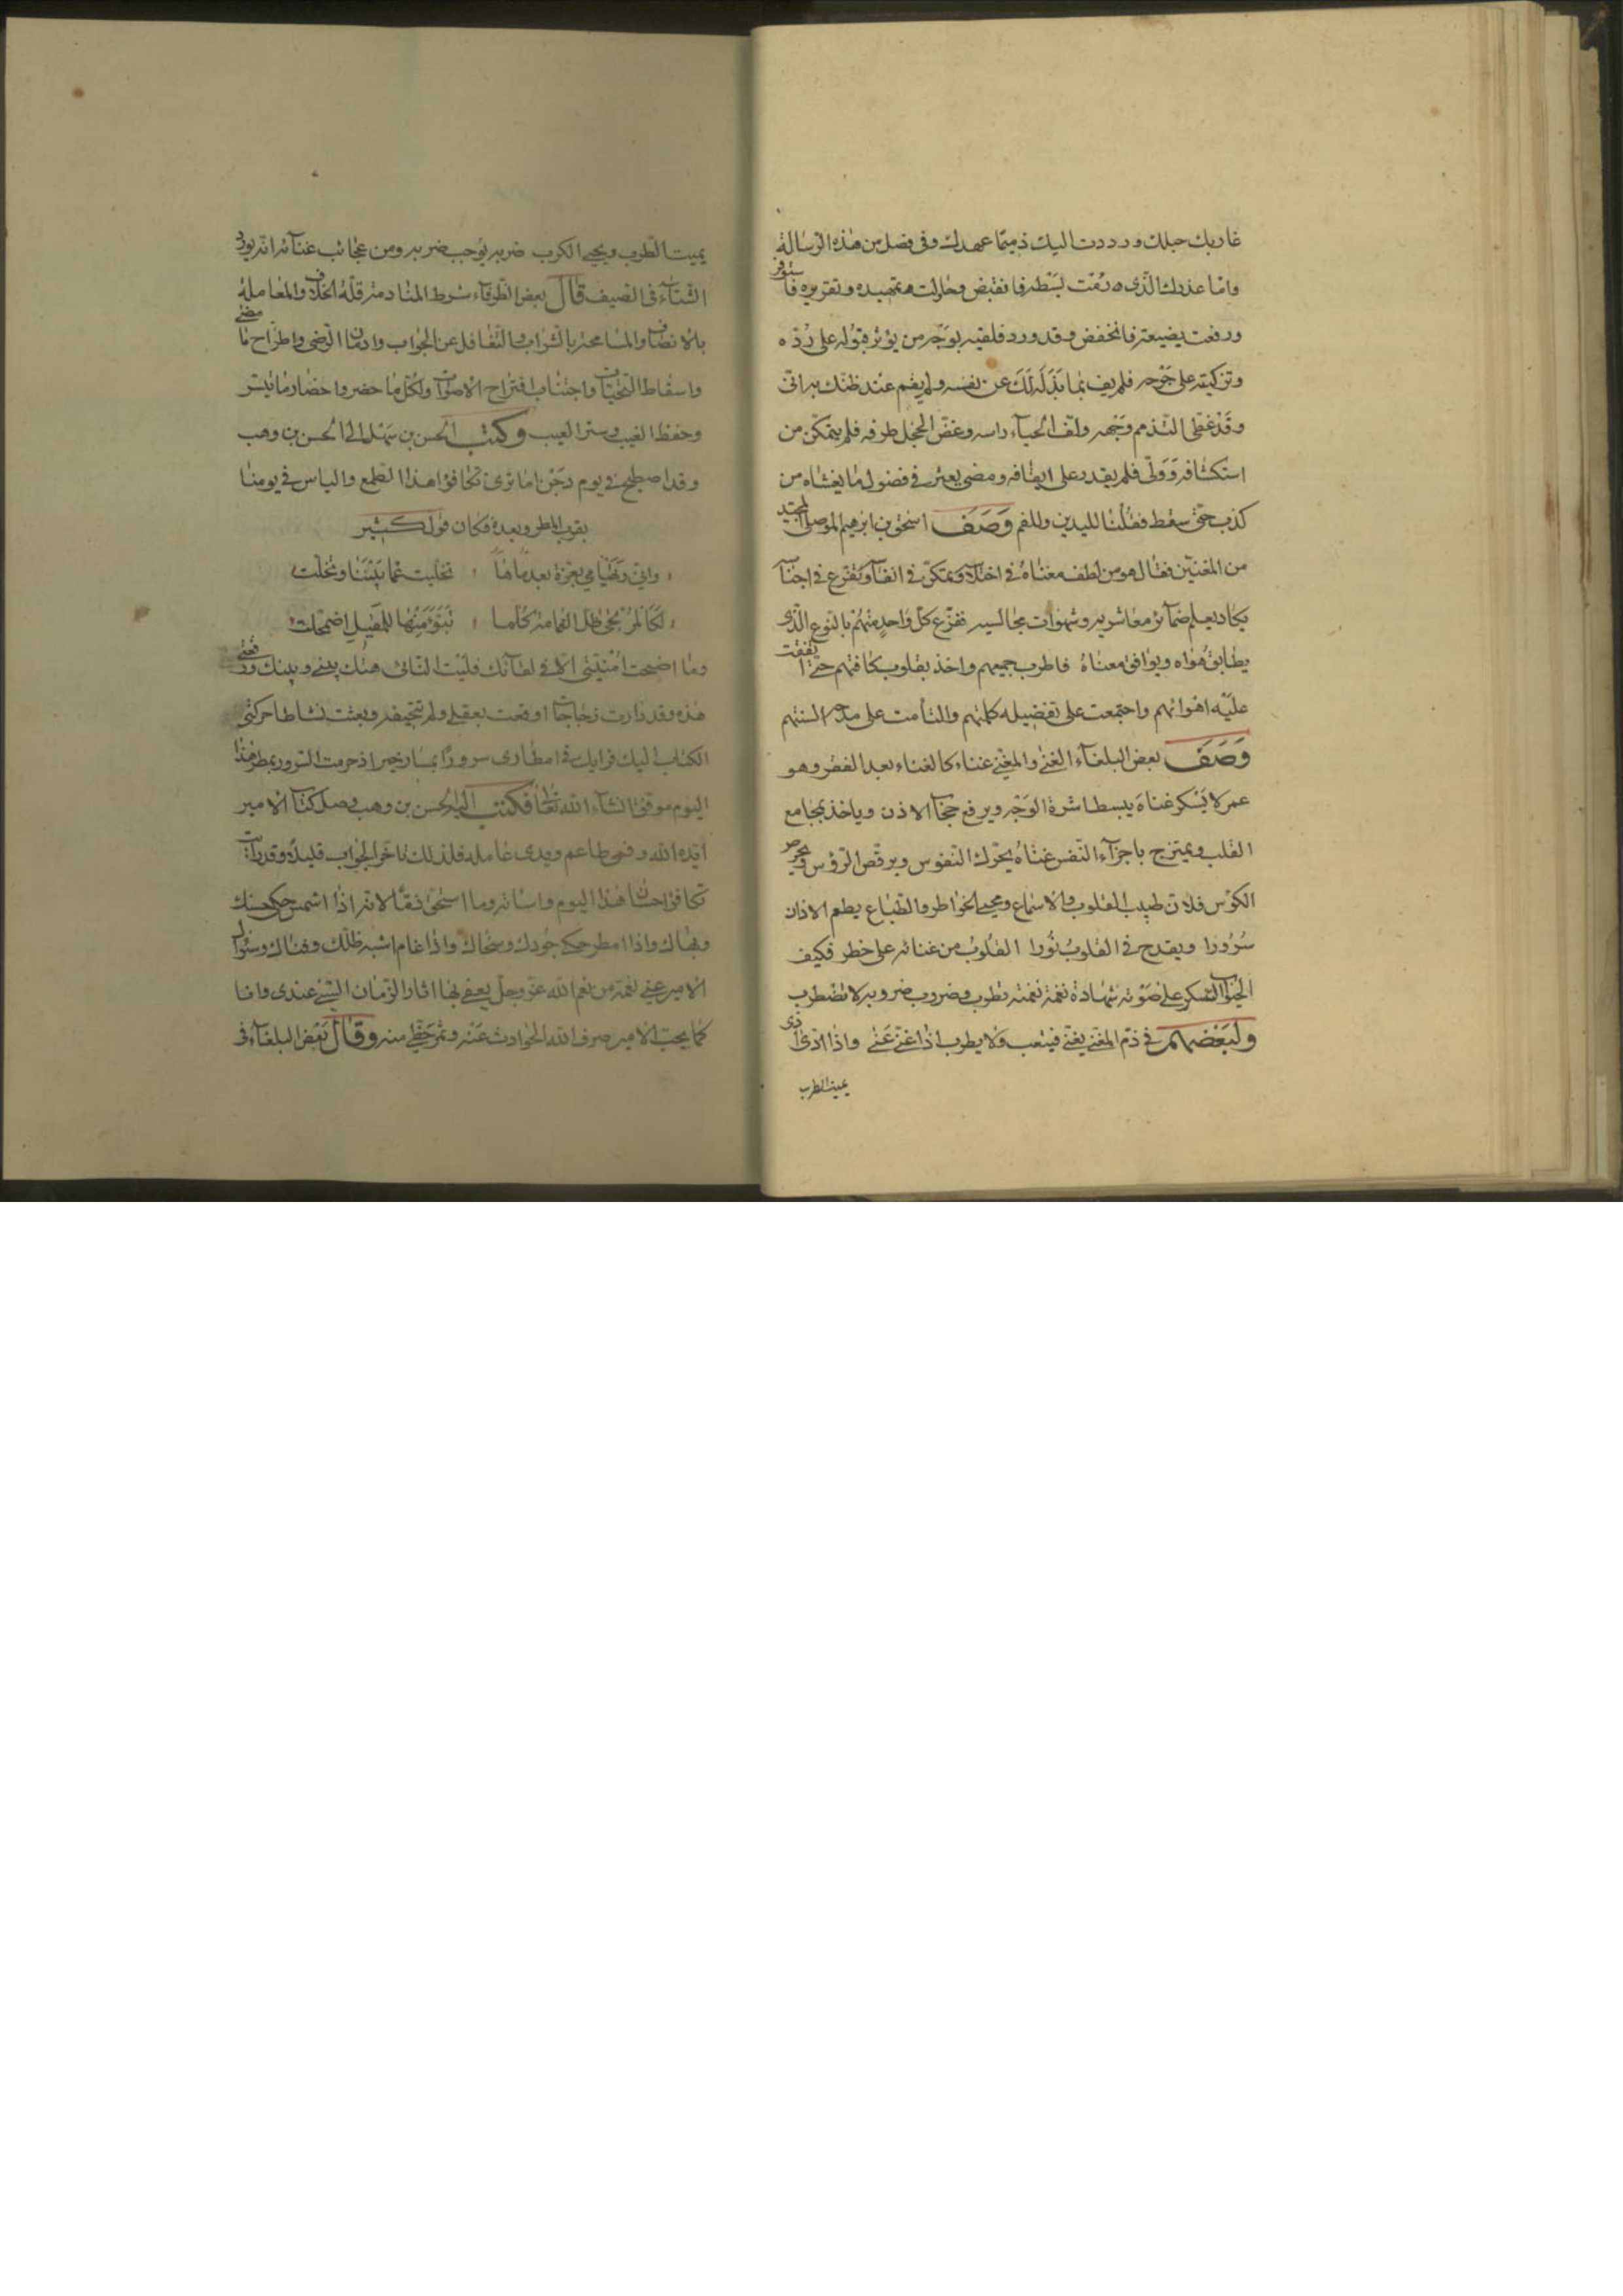 غاربك حبلك ورددت اليك ذميما عهدك وفى فصل من هذه الرسالة
واما عذرك الذى رمت بسطه فانقبض وحاولت تمهيده وتقريره فاستوفز
ورفعت بضيعته فانخفض وقد ورد فلقيته بوجه من يؤثر قبوله على رده
وتزكيته على جرحه فلم يف بما بذله لك عن نفسه ولم يقم عند ظنك به انى
وقد غطى التذمم وجهه ولف الحياء راسه وغض الخجل طرفه فلم يتمكن من
استكشافه وولى فلم يقدر على ايقافه ومضى يعثر فى فضول ما يغشاه من
كذب حتى سقط فقلنا لليدين وللفم وصف اسحق بن ابرهيم الموصلى المجيد
من المغنين فقال هو من لطف معناه فى اختلاسه وتمكن فى انفاسه وتفرع فى اجناسه
يكاد يعلم ضمائر معاشريه وشهوات مجالسيه ففرع كل واحد منهم بالنوع الذى
يطابق هواه ويوافق معناه فاطرب جميعهم واخذ بقلوب كافتهم حتى اتفقت
عليه اهوائهم واجتمعت على تفضيله كلمتهم والتأمت على مدحه السنتهم
وصف بعض البلغاء الغنى والمغنى غناء كالغناء بعد الفقر وهو
عمر لا يسكر غناه يبسط اسرة الوجه ويرفع حجاب الاذن وياخذ بمجامع
القلب ويمتزج باجزاء النفس غناه يحرك النفوس ويرقص الرؤس ويحرض
الكؤس فلان طبيب القلوب والاسماع ومحيى الخواطر والطباع يطعم الاذان
سرورا ويقدح فى القلوب نورا القلوب من غنائه على خطر فكيف
الجيوب السكر على صوته شهادة نغمة نغمته تطرب وضروب ضروبه لا تضطرب
ولبعضهم فى ذم المغنى يغنى فيتعب ولا يطرب اذا غنى عنى واذا ادى اذى
يميت الطرب
يميت الطرب ويحيى الكرب ضربه يوجب ضربه ومن عجائب غنائه انه يورد
الشتاء فى الصيف قال بعض الظرفاء شرط المنادمة قلة الخلاف والمعاملة
بالانصاف والمسامحة بالشراب والتغافل عن الجواب وادمان الرضى واطراح ما مضى
واسقاط التحيات واجتناب اقتراح الاصوات واكل ما حضر واحضار ما تيسر
وحفظ الغيب وستر العيب وكتب الحسن بن سهل الى الحسن بن وهب
وقد اصطبح فى يوم دجن اما ترى تكافؤ هذا الطمع والياس فى يومنا
بقرب المطر وبعده فكان قول كثير
وانى وتهيامى بعزة بعد ما تخليت عما بيننا وتخلت
لكالمرتجى ظل الغمامة كلما تبوء منها للمقيل اضمحلت
وما اصبحت امنيتى الا فى لقائك فليت النائى هتك بينى وبينك ورقعتى
هذه وقد دارت زجاجات اوقعت بعقلى ولم تتحيفه وبعثت نشاطا حركنى
الكتاب اليك فرايك فى امطارى سرورا بسار خبرك اذ حرمت السرور بمطر هذا
اليوم موفقا ان شاء الله تعالى فكتب اليه الحسن بن وهب وصل كتاب الامير
ايده الله وفمى طاعم ويدى عاملة فلذلك تاخر الجواب قليلا وقد رايت
تكافؤ احسان هذا اليوم واساته وما استحق ذما لانه اذا اشمس حكى حسنك
وبهاك واذا امطر حكى جودك وسخاك واذا غام اشبه ظلك وفناك وسئوال
الامير عنى نعمة من نعم الله عز وجل يعفى بها اثار الزمان السيئ عندى وانا
كما يحب الامير صرف الله الحوادث عنه وعن حظى منه وقال بعض البلغاء فى